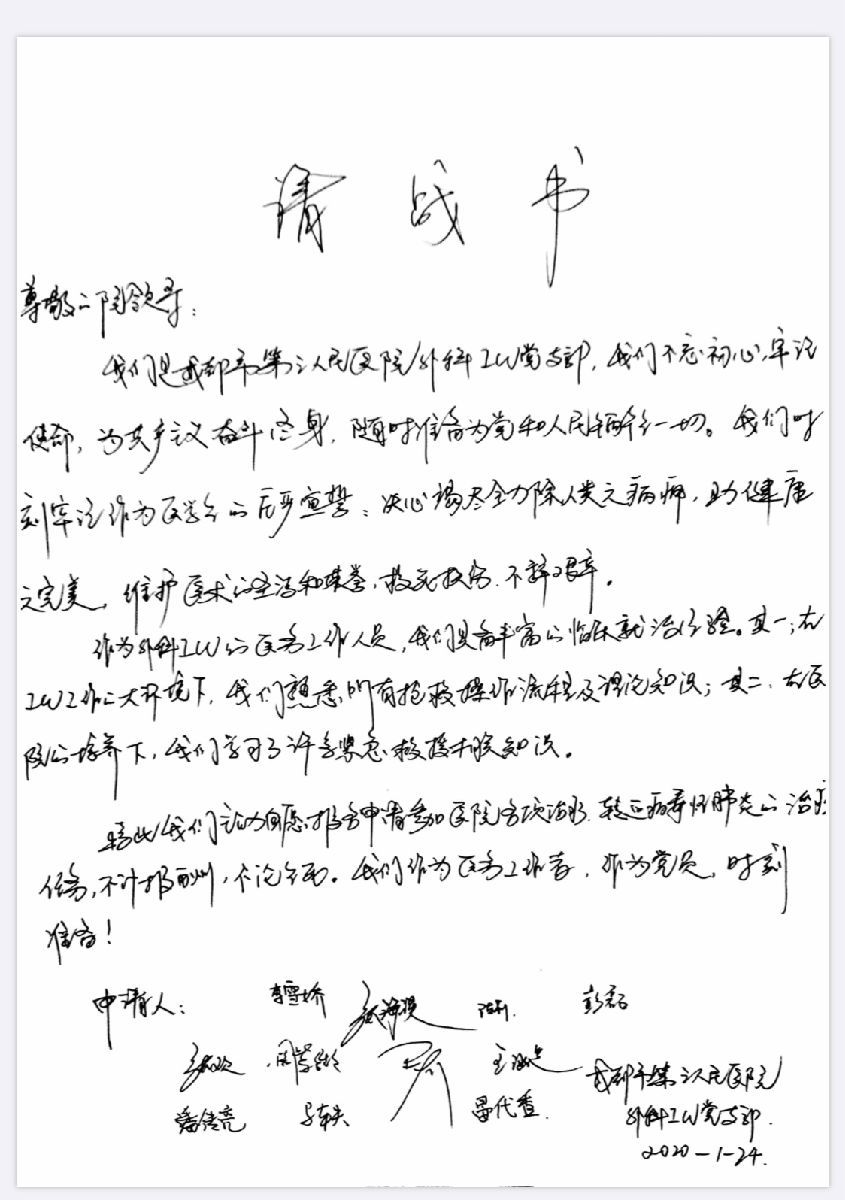 请战书
尊敬的院领导：
我们是成都市第三人民医院外科ICU党支部，我们不忘初心，牢记
使命，为共产主义奋斗终身，随时准备为党和人民牺牲一切。我们时
刻牢记作为医学生的庄严宣誓：决心竭尽全力除人类之病痛，助健康
之完美，维护医术的圣洁和荣誉，救死扶伤，不辞艰辛。
作为外科ICU的医务工作人员，我们具备丰富的临床救治经验。其一：在
ICU工作的大环境下，我们熟悉所有抢救操作流程及理论知识；其二、在医
院的培养下，我们学习了许多紧急救援相关知识。
特此我们主动自愿报名申请参加医院各项治疗 冠状病毒性肺炎的治疗
任务，不计报酬，不论生死。我们作为医务工作者，作为党员，时刻
准备！
申请人： 彭磊
潘传亮
成都市第三人民医院
外科ICU党支部
2020-1-24.